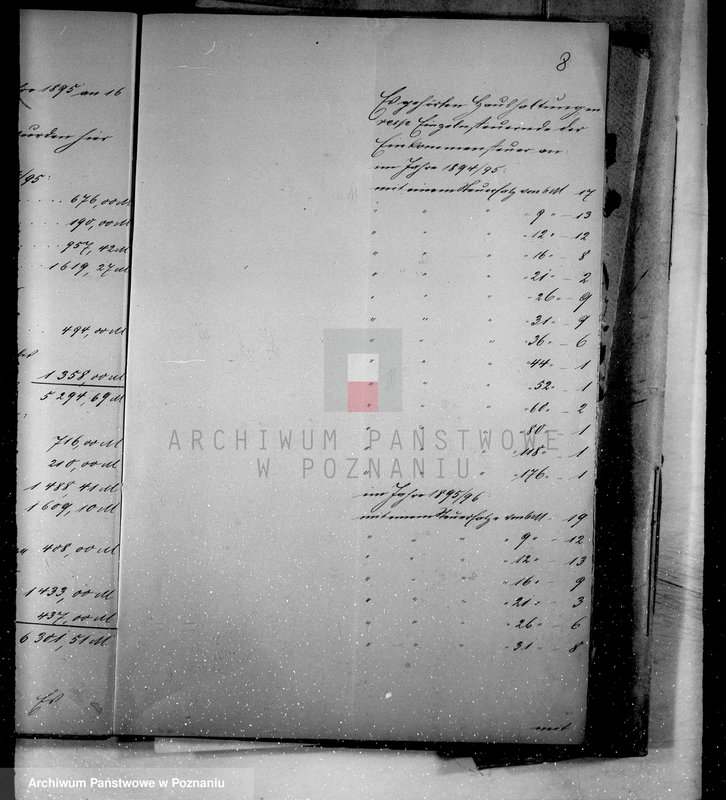 1895 an 16
wurden hier
/95:
676,00 M
190,00 M
957,42 M
1619,27 M
494,00 M
1358,00 M
5 294,69 M
716,00 M
210,00 M
1488,41 M
1609,10 M
408,00 M
1433,00 M
437,00 M
6 301,51 M
Es
8
Es gehörten Haushaltungen
resp. Einzelnsteuernde der
Einkommensteuer an:
im Jahre 1894/95:
mit einem Steuersatz von 6 M 17
" " " " 9 " — 13
" " " " 12 " — 12
" " " " 16 " — 8
" " " " 21 " — 2
" " " " 26 " — 9
" " " " 31 " — 9
" " " " 36 " — 6
" " " " 44 " — 1
" " " " 52 " — 1
" " " " 60 " — 2
" " " " 80 " — 1
" " " " 118 " — 1
" " " " 176 " — 1
im Jahre 1895/96
mit einem Steuersatze von 6 M — 19
" " " " 9 " — 12
" " " " 12 " — 13
" " " " 16 " — 9
" " " " 21 " — 3
" " " " 26 " — 6
" " " " 31 " — 8
mit
ARCHIWUM PAŃSTWOWE
W POZNANIU
Archiwum Państwowe w Poznaniu